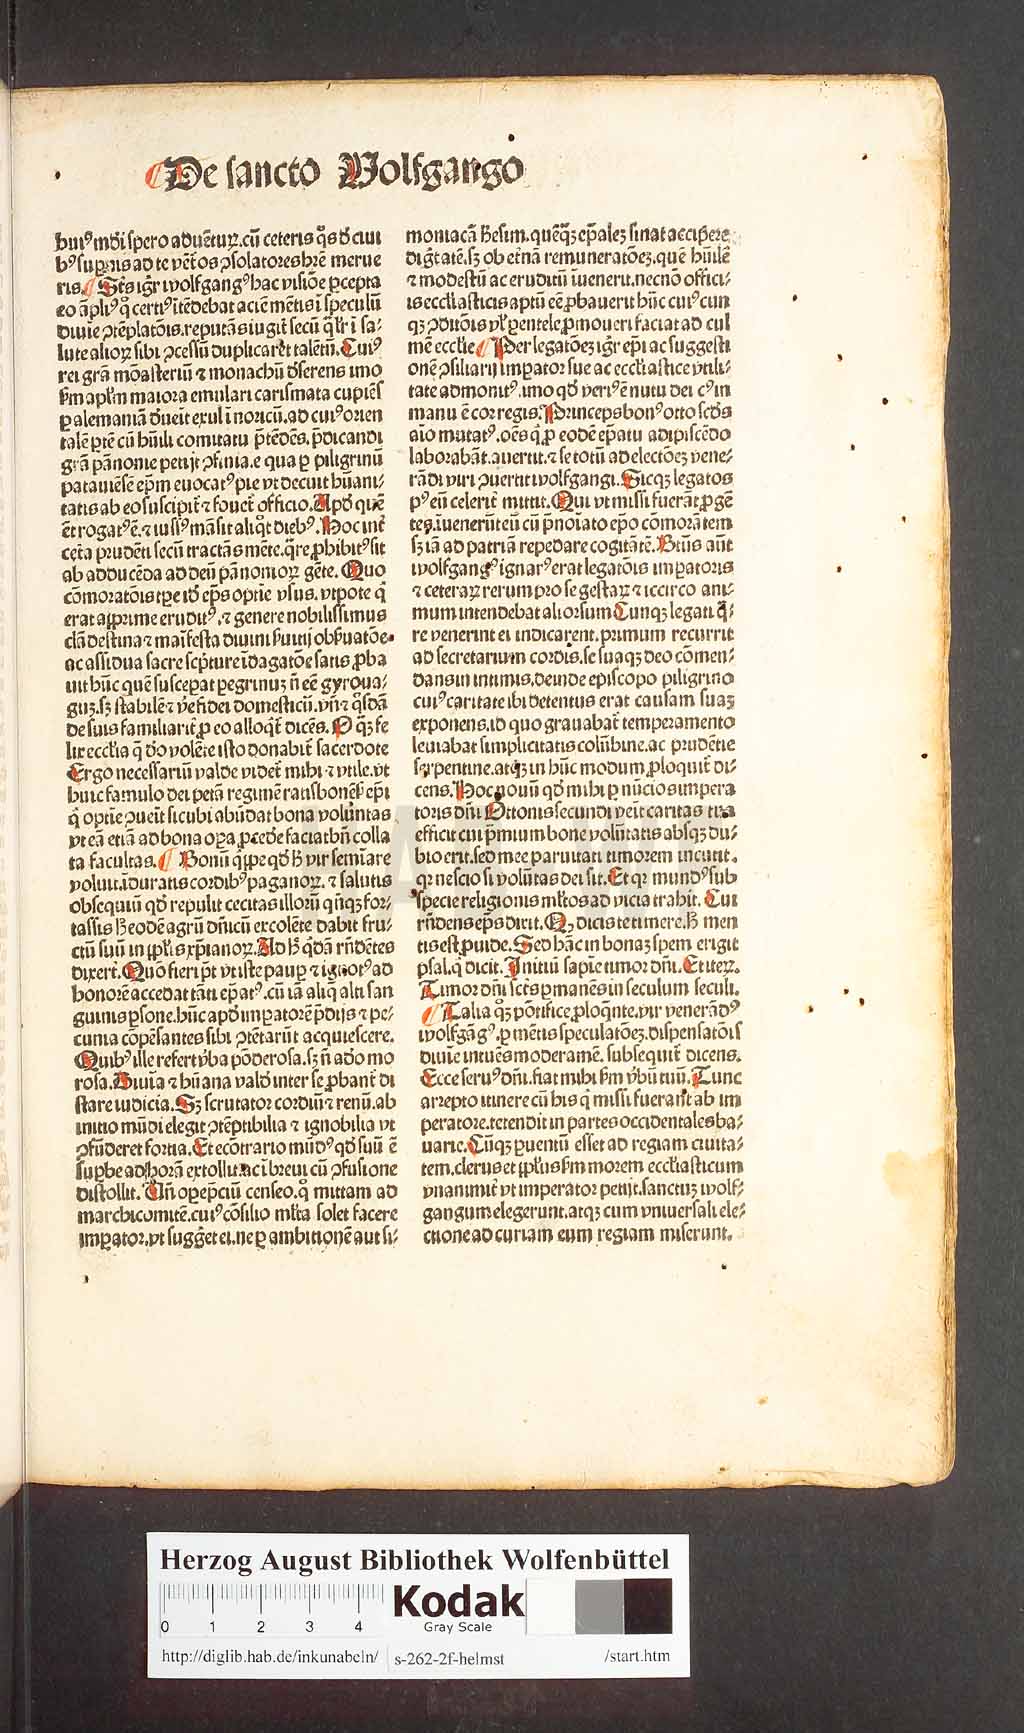 De sancto Wolfgango
huiꝰ mūdi spero aduētuꝝ. cū ceteris q̊s d̄ ciui
bꝰ supernis ad te vētos ꝯsolatores hr̄e merue
ris. Sctūs igr̄ wolfgangꝰ hac visiōe ꝑcepta
eo āpliꝰ q̊ certiꝰ ītēdebat aciē mētis ī speculū
diuīe ꝯtēplatōis. reputās iugit̄ secū q̄lr̄ ī sa⸗
lute alioꝝ sibi ꝯcessū duplicaret talētū. Cuiꝰ
rei grā mōasteriū ⁊ monachū d̄serens imo
ẜm apl̄m maiora emulari carismata cupiēs
ꝑ alemaniā d̄ueīt exul ī noricū. ad cuiꝰ orien
talē ꝑtē cū hūili comitatu p̄tēdēs. p̄dicandi
grā pānonie petijt ꝯfinia. e qua ꝑ piligrinū
patauiēsē ep̄m euocatꝰ pie vt decuit hūani⸗
tatis ab eo suscipit̄ ⁊ fouet̄ officio. Apd̓ quē
ēt rogatꝰ ē. ⁊ iussꝰ māsit aliq̊t diebꝰ. Hoc int̄
cet̄a prudēti secū tractās mēte. q̄re ꝓhibitꝰ sit
ab adducēda ad deū pānonioꝝ gēte. Quo
cōmoratōis tꝑe id̓ ep̄s optie vsus. vtpote q̄
erat apprime eruditꝰ. ⁊ genere nobilissimus
clādestina ⁊ maīfesta diuini ẜuitij obẜuatōe.
ac assidua sacre scpt̄ure īdagatōe satis ꝓba
uit hūc quē susceꝑat peregrinuꝫ nō eē gyroua⸗
guꝫ. sꝫ stabilē ⁊ ve̓ fidei domesticū. vn̄ ⁊ q̊sdā
de suis familiarit̄ ꝓ eo alloqt̄ dicēs. O q̄ꝫ fe
lix eccl̄ia q̄ d̓o volēte isto donabit̄ sacerdote
Ergo necessariū valde videt̄ mihi ⁊ vtile. vt
huic famulo dei petā regimē ratisbonēẜ ep̄i
q̄ optie ꝯueīt si cubi abūdat bona volūntas
vt eā etiā ad bona oꝑa ꝓcede̓ faciat bn̄ colla
ta facultas. Bonū q̄ ip̄e qd̓ ẜ vir semīare
voluit. īduratis cordibꝰ paganoꝝ. ⁊ salutis
obsequiū qd̓ repulit cecitas illorū qn̄qꝫ for⸗
tassis ẜ eodē agrū dn̄icū excolēte dabit fru⸗
ctū suū in ppl̄is xp̄ianoꝝ. Ad ẜ q̊dā rn̄dētes
dixer̄t. Quō fieri pt̄ vt iste paup̄ ⁊ ignotꝰ ad
honorē accedat tāti ep̄atꝰ. cū iā aliq̄ alti san
guinis ꝑsone. hūc apd̓ imꝑatorē p̄dijs ⁊ pe⸗
cunia cōpēsantes sibi ꝯtētarūt acquiescere.
Quibꝰ ille refert v̓ba pōderosa. sꝫ nō ado mo
rosa. Diuīa ⁊ hūana vald̓ inter se ꝓbant̄ di
stare iudicia. Sꝫ scrutator cordiū ⁊ renū. ab
initio mūdi elegit ꝯtēptibilia ⁊ ignobilia vt
ꝯfūderet fortia. Et ecōtrario mūdꝰ qd̓ suū ē
supbe ad horā extollit. ac ī breui cū ꝯfusione
distollit. Un̄ oꝑep̄ciū censeo. q̊ mittam ad
marchicomitē. cuiꝰ cōsilio ml̄ta solet facere
imꝑator. vt suggēt ei. ne ꝑ ambitionē aut si⸗
moniacā heresim. quēqꝫ ep̄alez sinat accipere
dig̓tatē. sꝫ ob et̓nā remuneratōeꝫ. quē hūilē
⁊ modestū ac eruditū īuenerit. necnō offici⸗
is eccl̄iasticis aptū eē ꝓbauerit hūc cuiꝰcun
qꝫ ꝯditōis vl̓ ꝑentele ꝓmoueri faciat ad cul
mē eccl̄ie. Per legatōeꝫ igr̄ ep̄i ac suggesti
onē ꝯsiliarij imꝑator sue ac eccl̄iastice vtili⸗
tate admonitꝰ. imo qd̓ veriꝰ ē nutu dei cꝰ in
manu ē cor regis. Princeps bonꝰ otto scd̓s
aīo mutatꝰ. oēs q̄ ꝓ eodē ep̄atu adipiscēdo
laborabāt. auertit. ⁊ se totū ad electōeꝫ vene⸗
rādi viri ꝯuertit wolfgangi. Sicqꝫ legatos
pꝰ eū celerit̄ mittit. Qui vt missi fuerāt ꝓgē
tes. īuenerūt eū cū p̄noīato ep̄o cōmorātem
sꝫ iā ad patriā repedare cogitātē. Btūs aūt
wolfgangꝰ ignarꝰ erat legatōis imꝑatoris
⁊ ceteraꝝ rerum pro se gestaꝝ ⁊ iccirco ani⸗
mum intendebat aliorsum Cunqꝫ legati q̄⸗
re venerint ei indicarent. primum recurrit
ad secretarium cordis. se suaqꝫ deo cōmen⸗
dans in intimis. deinde episcopo piligrino
cuiꝰ caritate ibi detentus erat causam suaꝫ
exponens. id quo grauabat̄ temperamento
leuiabat simplicitatis colūbine. ac prudētie
serpentine. atqꝫ in hūc modum ꝓloquit̄ di⸗
cens. Hoc nouū qd̓ mihi ꝑ nūcios impera
toris dn̄i Ottonis secundi veīt caritas tua
efficit cui p̄mium bone volūtatis absqꝫ du⸗
bio erit. sed mee paruitati timorem incutit.
qꝛ nescio si volūtas dei sit. Et qꝛ mundꝰ sub
specie religionis ml̄tos ad vicia trahit. Cui
rn̄dens ep̄s dixit. Qꝫ dicis te timere. ẜ men
tis est ꝓuide. Sed hāc in bonaꝫ spem erigit
psal. q̄ dicit. Initiū sapīe timor dn̄i. Et iteꝝ.
Timor dn̄i sctūs ꝑmanēs in seculum seculi.
Talia q̊ꝫ pōtifice ꝓloqn̄te. vir venerādꝰ
wolfgāgꝰ. ꝑ mētis speculatōeꝫ. dispensatōis
diuīe intuēs moderamē. subsequit̄ dicens.
Ecce seruꝰ dn̄i. fiat mihi ẜm v̓bū tuū. Tunc
arrepto itinere cū his q̄ missi fuerāt ab im
peratore. tetendit in partes occidentales ba⸗
uarie. Cūqꝫ ꝑuentū esset ad regiam ciuita⸗
tem. clerus et ppl̄us ẜm morem eccl̄iasticum
vnanimit̄ vt imperator petijt. sanctuꝫ wolf⸗
gangum elegerunt. atqꝫ cum vniuersali ele⸗
ctione ad curiam eum regiam miserunt.
HAB
Herzog August Bibliothek Wolfenbüttel
0 1 2 3 4
Kodak
Gray Scale
http://diglib.hab.de/inkunabeln/ s-262-2f-helmst /start.htm